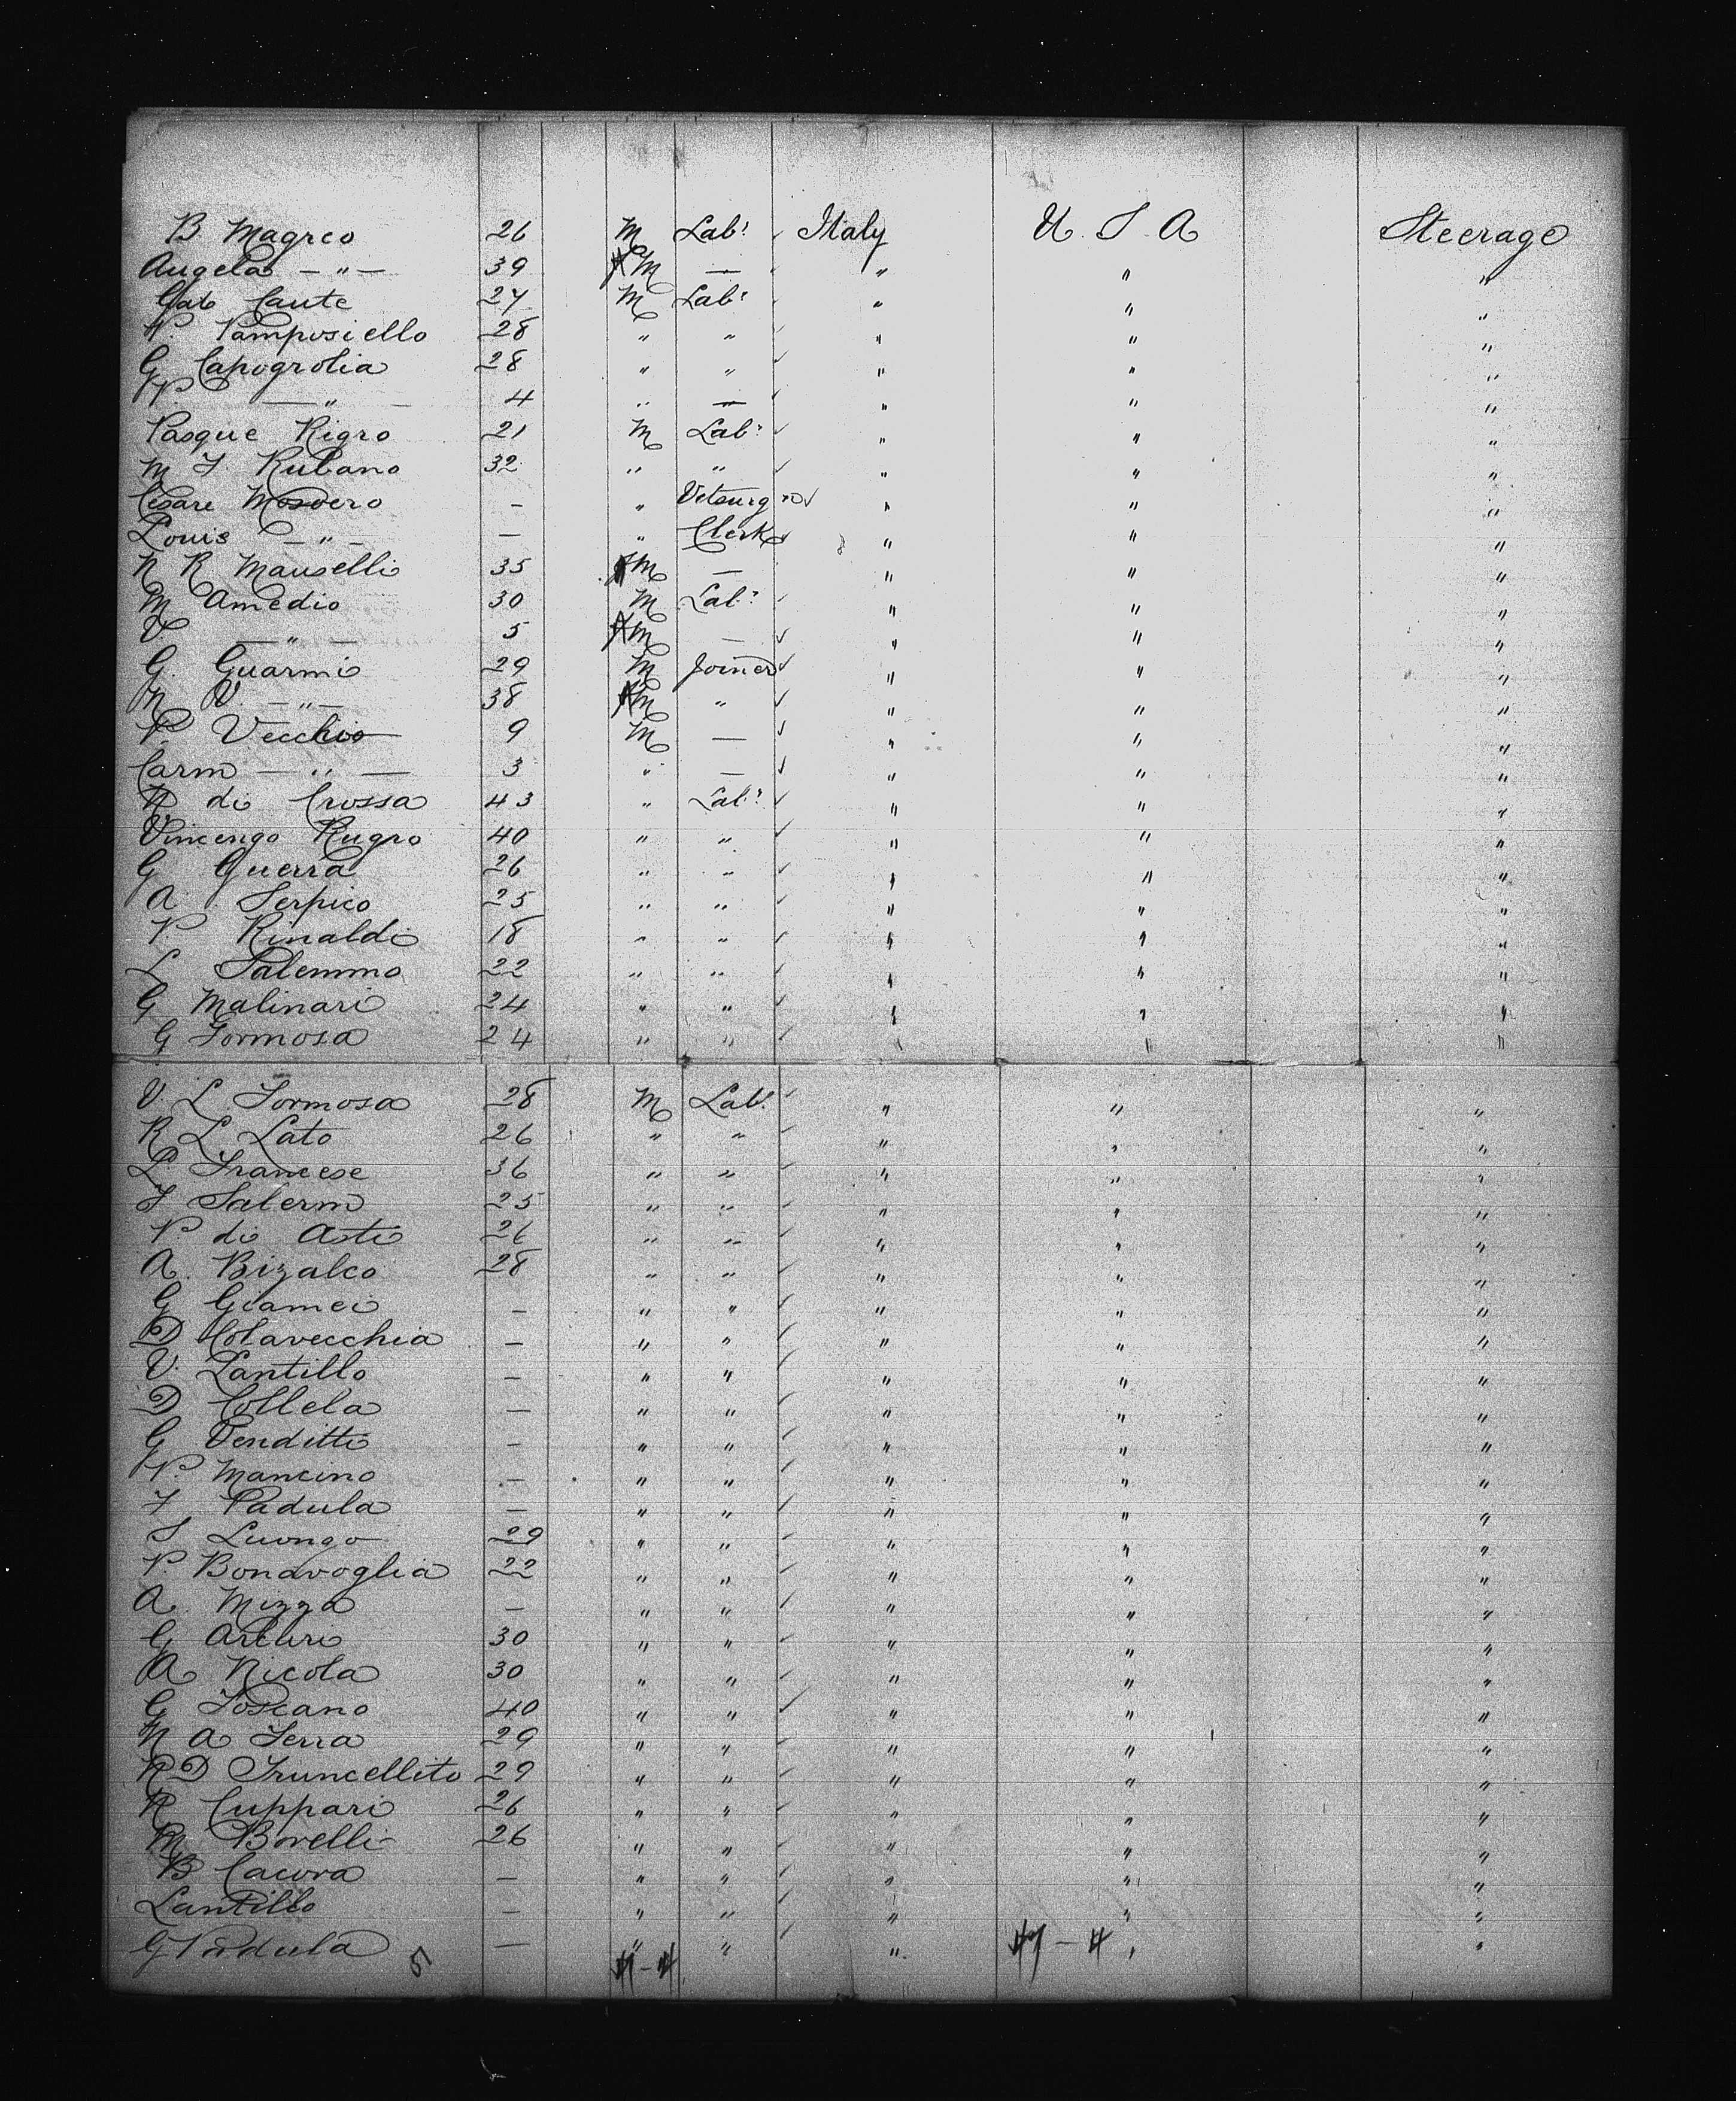 B Magreo 26 M Lab? Italy U. S. A Steerage
Angela — " — 39 M — " " "
Gab Caute 27 M Lab? " " "
P. Pamposiello 28 " " " " "
G Capogrolia 28 " " " " "
P. — " — 4 " — " " "
Pasque Rigro 21 M Lab? " " "
M F. Rubano 32 " " " " "
Cesare Mosoero — " Vetsurg " " "
Louis — " — — " Clerk " " "
N R Mauselli 35 M — " " "
M Amedio 30 M Lab? " " "
V. — " — 5 M — " " "
G. Guarmi 29 M Joiner " " "
N V. — " — 38 M " " " "
P. Vecchio 9 M — " " "
Carm — " — 3 " — " " "
N di Crossa 43 " Lab? " " "
Vincengo Rugro 40 " " " " "
G Guerra 26 " " " " "
A. Serpico 25 " " " " "
P. Rinaldi 18 " " " " "
L Salemmo 22 " " " " "
G Malinari 24 " " " " "
G Formosa 24 " " " " "
V. L Formosa 28 M Lab? " " "
R L Lato 26 " " " " "
L. Francese 36 " " " " "
F Salerm 25 " " " " "
P di Asti 26 " " " " "
A. Bizalco 28 " " " " "
G Giamei — " " " " "
D Colavecchia — " " " " "
V. Lantillo — " " " " "
D Collela — " " " " "
G Venditti — " " " " "
P. Mancino — " " " " "
F Padula — " " " " "
S Luongo 29 " " " " "
P. Bonavoglia 22 " " " " "
A. Mizza — " " " " "
G Arturi 30 " " " " "
A Nicola 30 " " " " "
G Toscano 40 " " " " "
N A Serra 29 " " " " "
R D Truncellito 29 " " " " "
R Cuppari 26 " " " " "
M Borelli 26 " " " " "
B Cacova — " " " " "
Lantillo — " " " " "
G Padula 51 — " " " " "
47 - 4